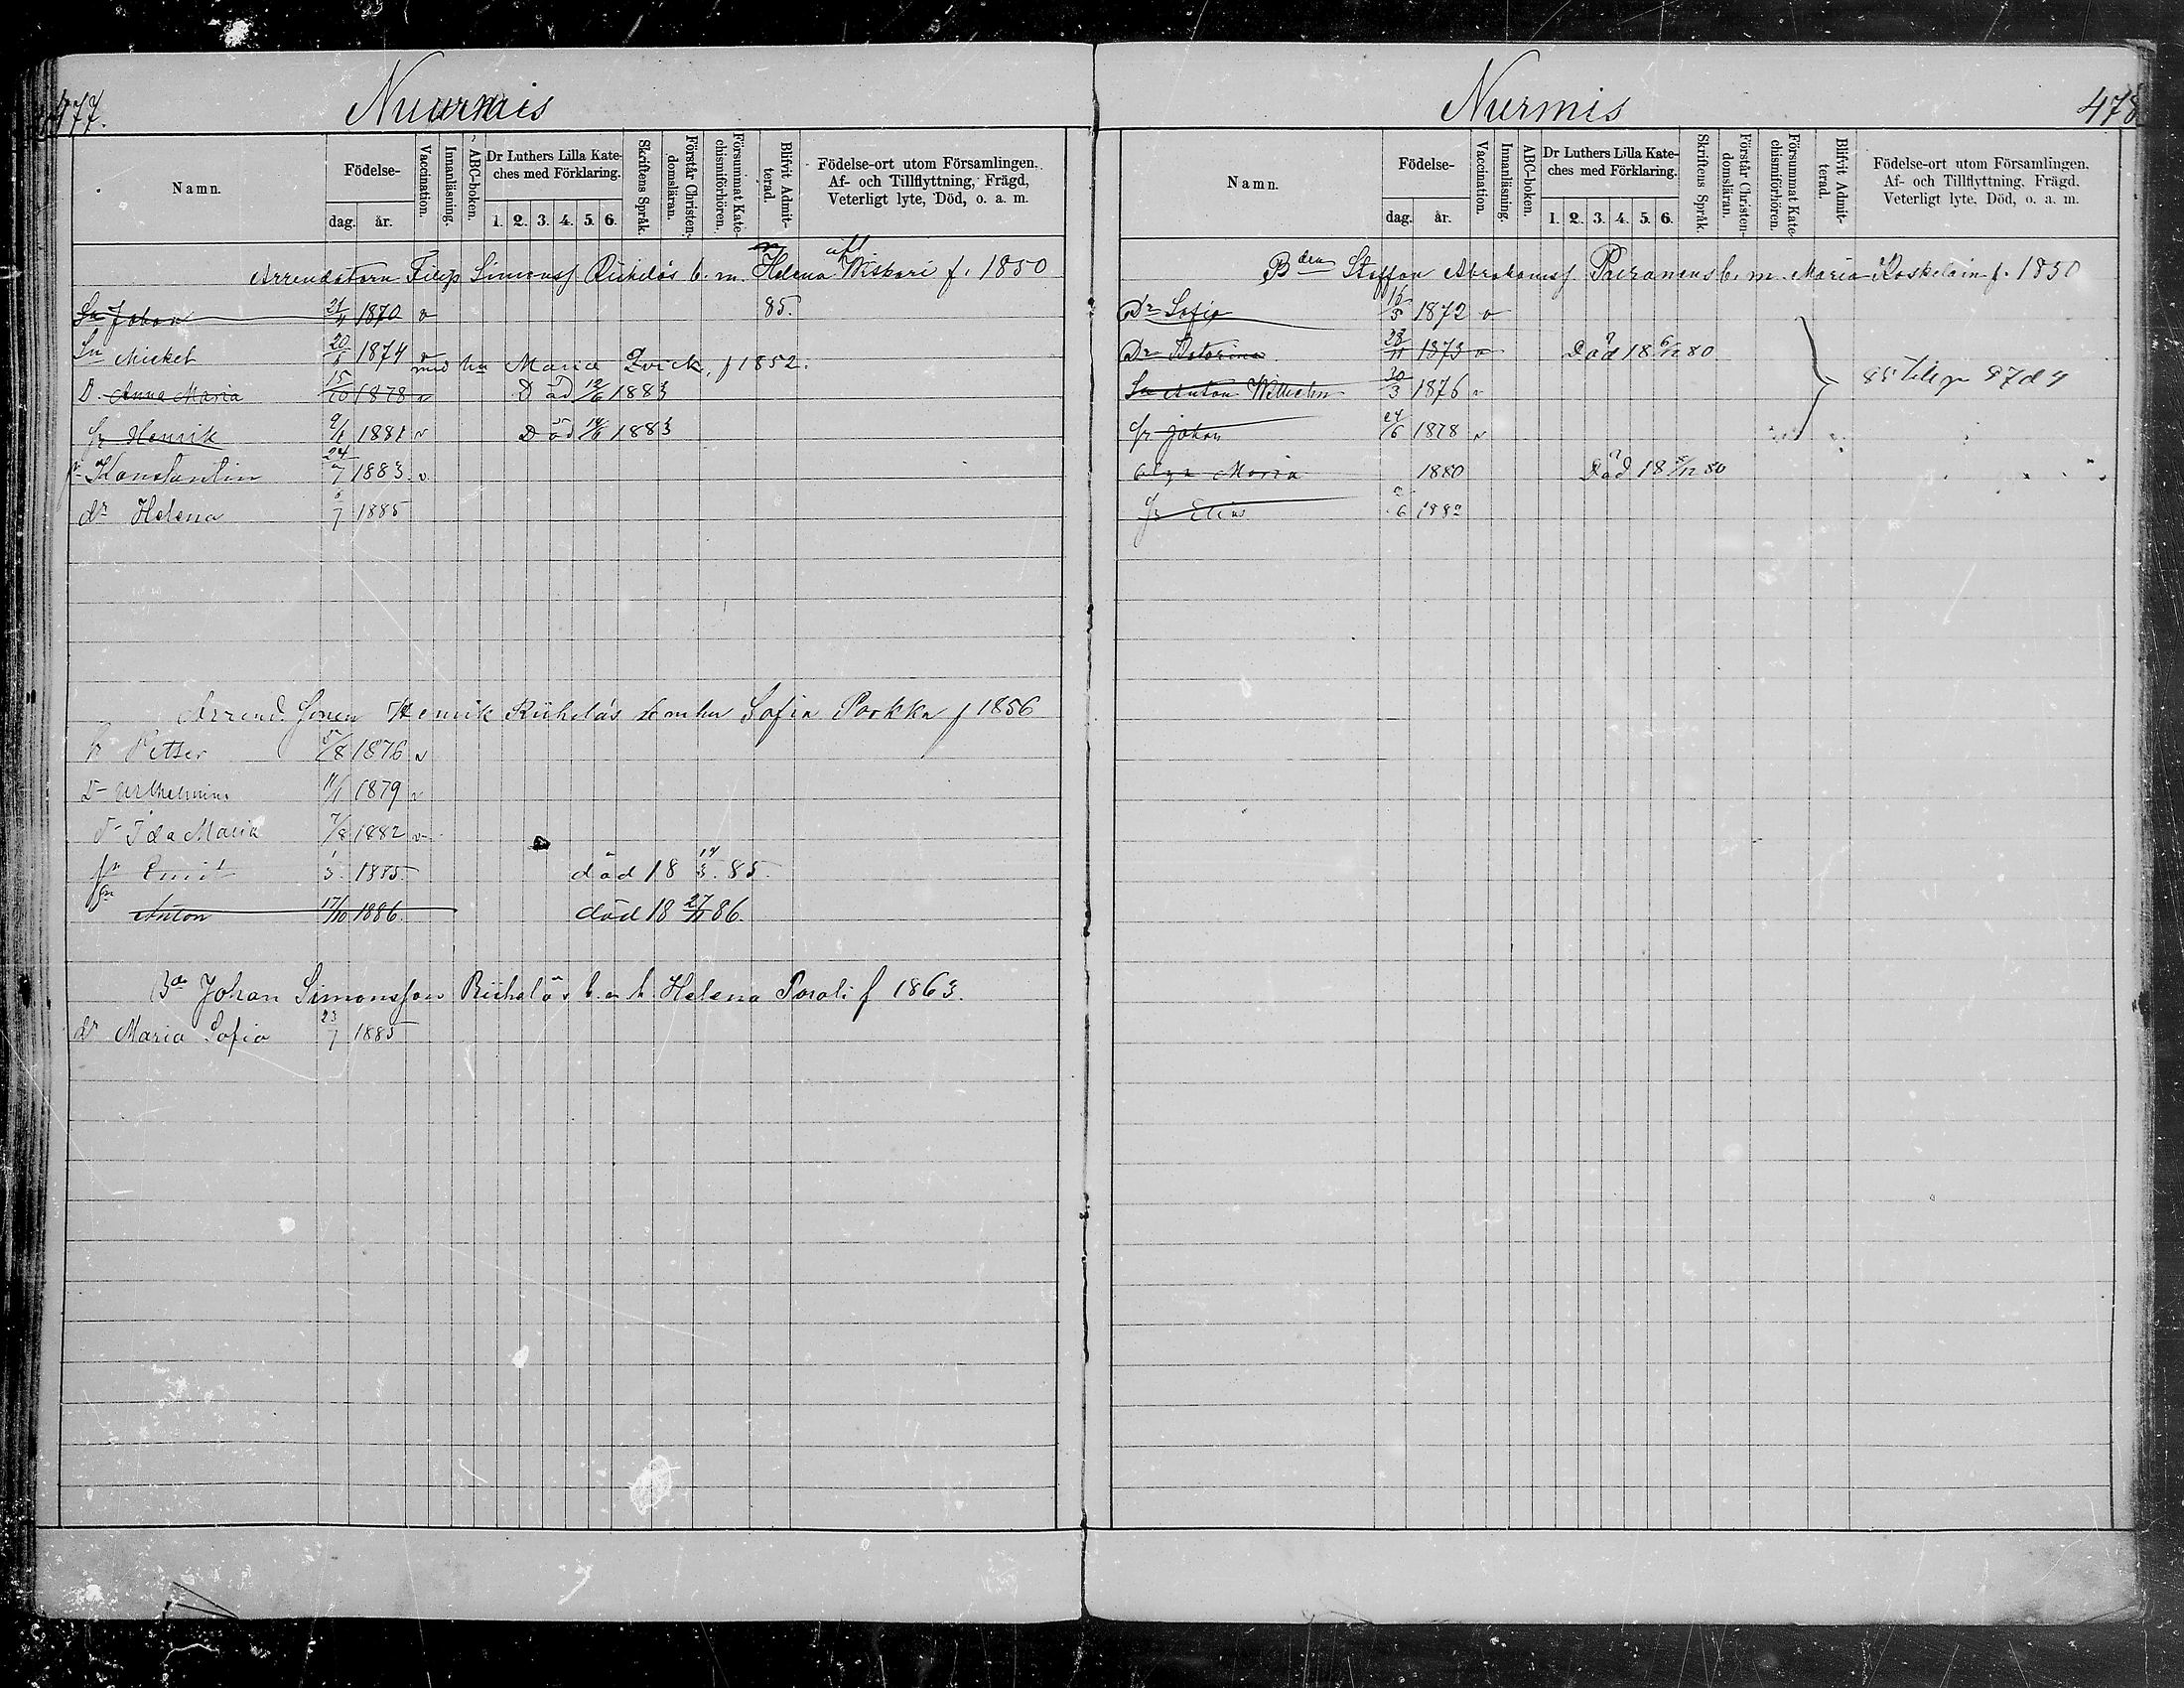 477.
Nuurmis
Namn.
Födelse-
dag.
år.
Vaccination.
Innanläsning.
ABC-boken.
Dr Luthers Lilla Kate-
ches med Förklaring.
1. 2. 3. 4. 5. 6.
Skriftens Språk.
Förstår Christen-
domsläran.
Försummat Kate-
chismiförhören.
Blifvit Admit-
terad.
Födelse-ort utom Församlingen.
Af- och Tillflyttning, Frägd,
Veterligt lyte, Död, o. a. m.
Arrendatorn Filip Simonss Riiheläs b. m. Helena Wiskari f. 1850
Sn Johan 21/11 1870 v 85.
Sn Mickel 20/1 1874 v
med hu Maria Qvick, f 1852.
D. Anna Maria 15/10 1878 v Död 12/6 1883
Henrik 9/1 1881 v Död 14/6 1883
Konstantin 24/7 1883 v
dr Helena 7 1885
Arrend Henrik Riiheläs Sofia Porkka f 1856
Petter 5/8 1876 v
Wilhelmina 11/1 1879 v
Ida Maria 7/8 1882 v
Emil 1/3 1885 död 18 14/3 85
Anton 17/10 1886 död 18 27/11 86.
Johan Simonsson Riiheläs Helena Porali f 1863.
dr Maria Sofia 23/7 1885
Nurmis
478
Namn.
Födelse-
dag.
år.
Vaccination.
Innanläsning.
ABC-boken.
Dr Luthers Lilla Kate-
ches med Förklaring.
1. 2. 3. 4. 5. 6.
Skriftens Språk.
Förstår Christen-
domsläran.
Försummat Kate-
chismiförhören.
Blifvit Admit-
terad.
Födelse-ort utom Församlingen.
Af- och Tillflyttning. Frägd.
Veterligt lyte, Död, o. a. m.
Bden Staffan Abrahamss Paeranens b. m. Maria Koskelain f. 1850
Dr Sofia 16/5 1872 v
Dr Katarina 28/11 1873 v Död 18 6/12 80
Sn Anton Wilhelm 30/3 1876 v
Johan 24/6 1878 v
Maria 1880 Död 18 8/12 80
Elias 6